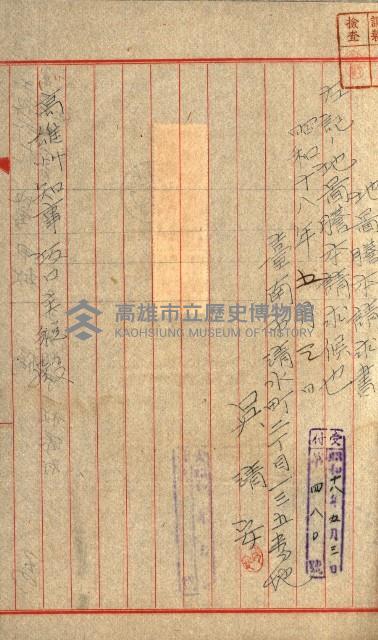 檢查
地圖謄本請求書
左記ノ地圖謄本請求候也
昭和十八年五月三日
臺南市清水町二丁目一三五番地
吳清安
高雄州知事坂口主税殿
受付
昭和十八年五月三日
第四八〇號
高雄市立歷史博物館
KAOHSIUNG MUSEUM OF HISTORY